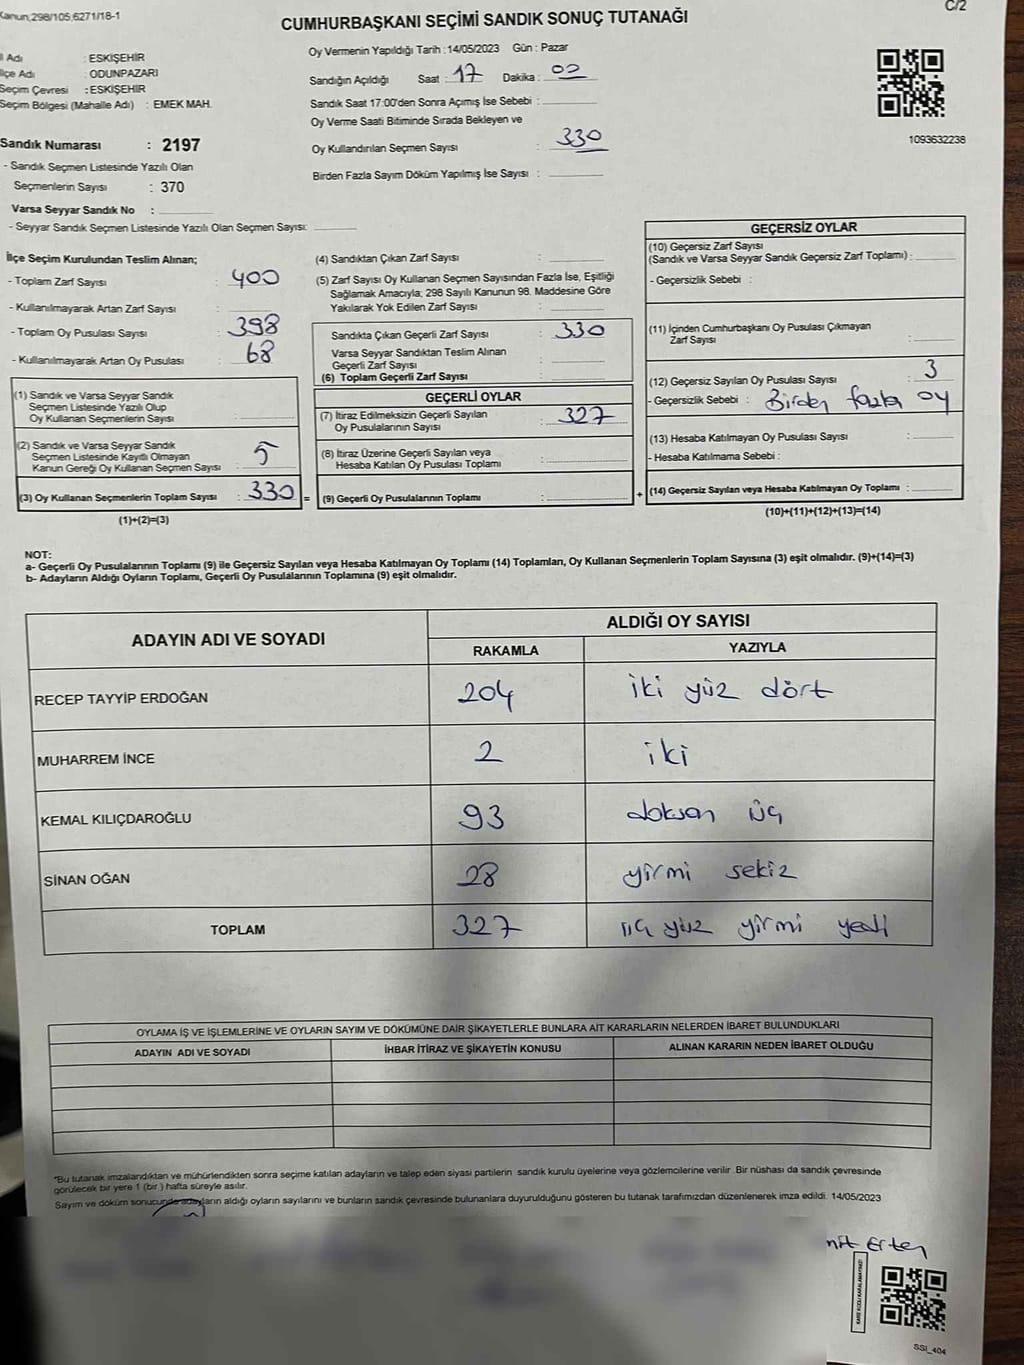 Kanun;298/105;6271/18-1
C/2
CUMHURBAŞKANI SEÇİMİ SANDIK SONUÇ TUTANAĞI
İl Adı : ESKİŞEHİR
İlçe Adı : ODUNPAZARI
Seçim Çevresi : ESKİŞEHİR
Seçim Bölgesi (Mahalle Adı) : EMEK MAH.
Sandık Numarası : 2197
- Sandık Seçmen Listesinde Yazılı Olan
Seçmenlerin Sayısı : 370
Varsa Seyyar Sandık No :
- Seyyar Sandık Seçmen Listesinde Yazılı Olan Seçmen Sayısı:
Oy Vermenin Yapıldığı Tarih : 14/05/2023 Gün : Pazar
Sandığın Açıldığı Saat : 17 Dakika : 00
Sandık Saat 17:00'den Sonra Açımış İse Sebebi :
Oy Verme Saati Bitiminde Sırada Bekleyen ve
Oy Kullandırılan Seçmen Sayısı : 330
Birden Fazla Sayım Döküm Yapılmış İse Sayısı :
1093632238
İlçe Seçim Kurulundan Teslim Alınan;
- Toplam Zarf Sayısı : 400
- Kullanılmayarak Artan Zarf Sayısı :
- Toplam Oy Pusulası Sayısı : 398
- Kullanılmayarak Artan Oy Pusulası : 68
(1) Sandık ve Varsa Seyyar Sandık
Seçmen Listesinde Yazılı Olup
Oy Kullanan Seçmenlerin Sayısı :
(2) Sandık ve Varsa Seyyar Sandık
Seçmen Listesinde Kayıtlı Olmayan
Kanun Gereği Oy Kullanan Seçmen Sayısı : 5
(3) Oy Kullanan Seçmenlerin Toplam Sayısı : 330 =
(1)+(2)=(3)
(4) Sandıktan Çıkan Zarf Sayısı :
(5) Zarf Sayısı Oy Kullanan Seçmen Sayısından Fazla İse, Eşitliği
Sağlamak Amacıyla; 298 Sayılı Kanunun 98. Maddesine Göre
Yakılarak Yok Edilen Zarf Sayısı :
Sandıkta Çıkan Geçerli Zarf Sayısı : 330
Varsa Seyyar Sandıktan Teslim Alınan
Geçerli Zarf Sayısı :
(6) Toplam Geçerli Zarf Sayısı :
GEÇERLİ OYLAR
(7) İtiraz Edilmeksizin Geçerli Sayılan
Oy Pusulalarının Sayısı : 327
(8) İtiraz Üzerine Geçerli Sayılan veya
Hesaba Katılan Oy Pusulası Toplamı :
(9) Geçerli Oy Pusulalarının Toplamı : +
GEÇERSİZ OYLAR
(10) Geçersiz Zarf Sayısı
(Sandık ve Varsa Seyyar Sandık Geçersiz Zarf Toplamı) :
- Geçersizlik Sebebi :
(11) İçinden Cumhurbaşkanı Oy Pusulası Çıkmayan
Zarf Sayısı :
(12) Geçersiz Sayılan Oy Pusulası Sayısı : 3
- Geçersizlik Sebebi : Birden fazla oy
(13) Hesaba Katılmayan Oy Pusulası Sayısı :
- Hesaba Katılmama Sebebi :
(14) Geçersiz Sayılan veya Hesaba Katılmayan Oy Toplamı :
(10)+(11)+(12)+(13)=(14)
NOT:
a- Geçerli Oy Pusulalarının Toplamı (9) ile Geçersiz Sayılan veya Hesaba Katılmayan Oy Toplamı (14) Toplamları, Oy Kullanan Seçmenlerin Toplam Sayısına (3) eşit olmalıdır. (9)+(14)=(3)
b- Adayların Aldığı Oyların Toplamı, Geçerli Oy Pusulalarının Toplamına (9) eşit olmalıdır.
ADAYIN ADI VE SOYADI
ALDIĞI OY SAYISI
RAKAMLA YAZIYLA
RECEP TAYYİP ERDOĞAN 204 iki yüz dört
MUHARREM İNCE 2 iki
KEMAL KILIÇDAROĞLU 93 doksan üç
SİNAN OĞAN 28 yirmi sekiz
TOPLAM 327 üç yüz yirmi yedi
OYLAMA İŞ VE İŞLEMLERİNE VE OYLARIN SAYIM VE DÖKÜMÜNE DAİR ŞİKAYETLERLE BUNLARA AİT KARARLARIN NELERDEN İBARET BULUNDUKLARI
ADAYIN ADI VE SOYADI İHBAR İTİRAZ VE ŞİKAYETİN KONUSU ALINAN KARARIN NEDEN İBARET OLDUĞU
"Bu tutanak imzalandıktan ve mühürlendikten sonra seçime katılan adayların ve talep eden siyasi partilerin sandık kurulu üyelerine veya gözlemcilerine verilir. Bir nüshası da sandık çevresinde
görülecek bir yere 1 (bir) hafta süreyle asılır.
Sayım ve döküm sonucunda adayların aldığı oyların sayılarını ve bunların sandık çevresinde bulunanlara duyurulduğunu gösteren bu tutanak tarafımızdan düzenlenerek imza edildi. 14/05/2023
Erten
SSI_404